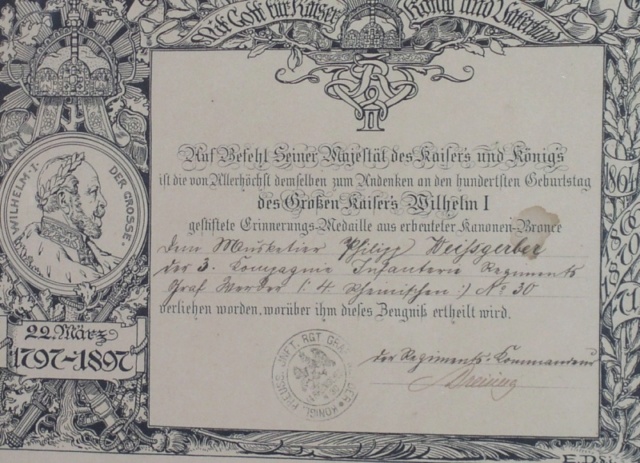 Mit Gott für Kaiser, König und Vaterland
WILHELM·I· DER GROSSE·
1864
1866
1870
1871
II
Auf Befehl Seiner Majestät des Kaisers und Königs
ist die von Allerhöchst demselben zum Andenken an den hundertsten Geburtstag
des Großen Kaisers Wilhelm I
gestiftete Erinnerungs-Medaille aus erbeuteter Kanonen-Bronce
dem Musketier Philipp Weißgerber
der 3. Compagnie Infanterie Regiments
Graf Werder (:4. Rheinischen:) No 30
verliehen worden, worüber ihm dieses Zeugniß ertheilt wird.
22. März
1797-1897
der Regiments-Commandeur
KÖNIGL. PREUSS. INFT. RGT. GRAF